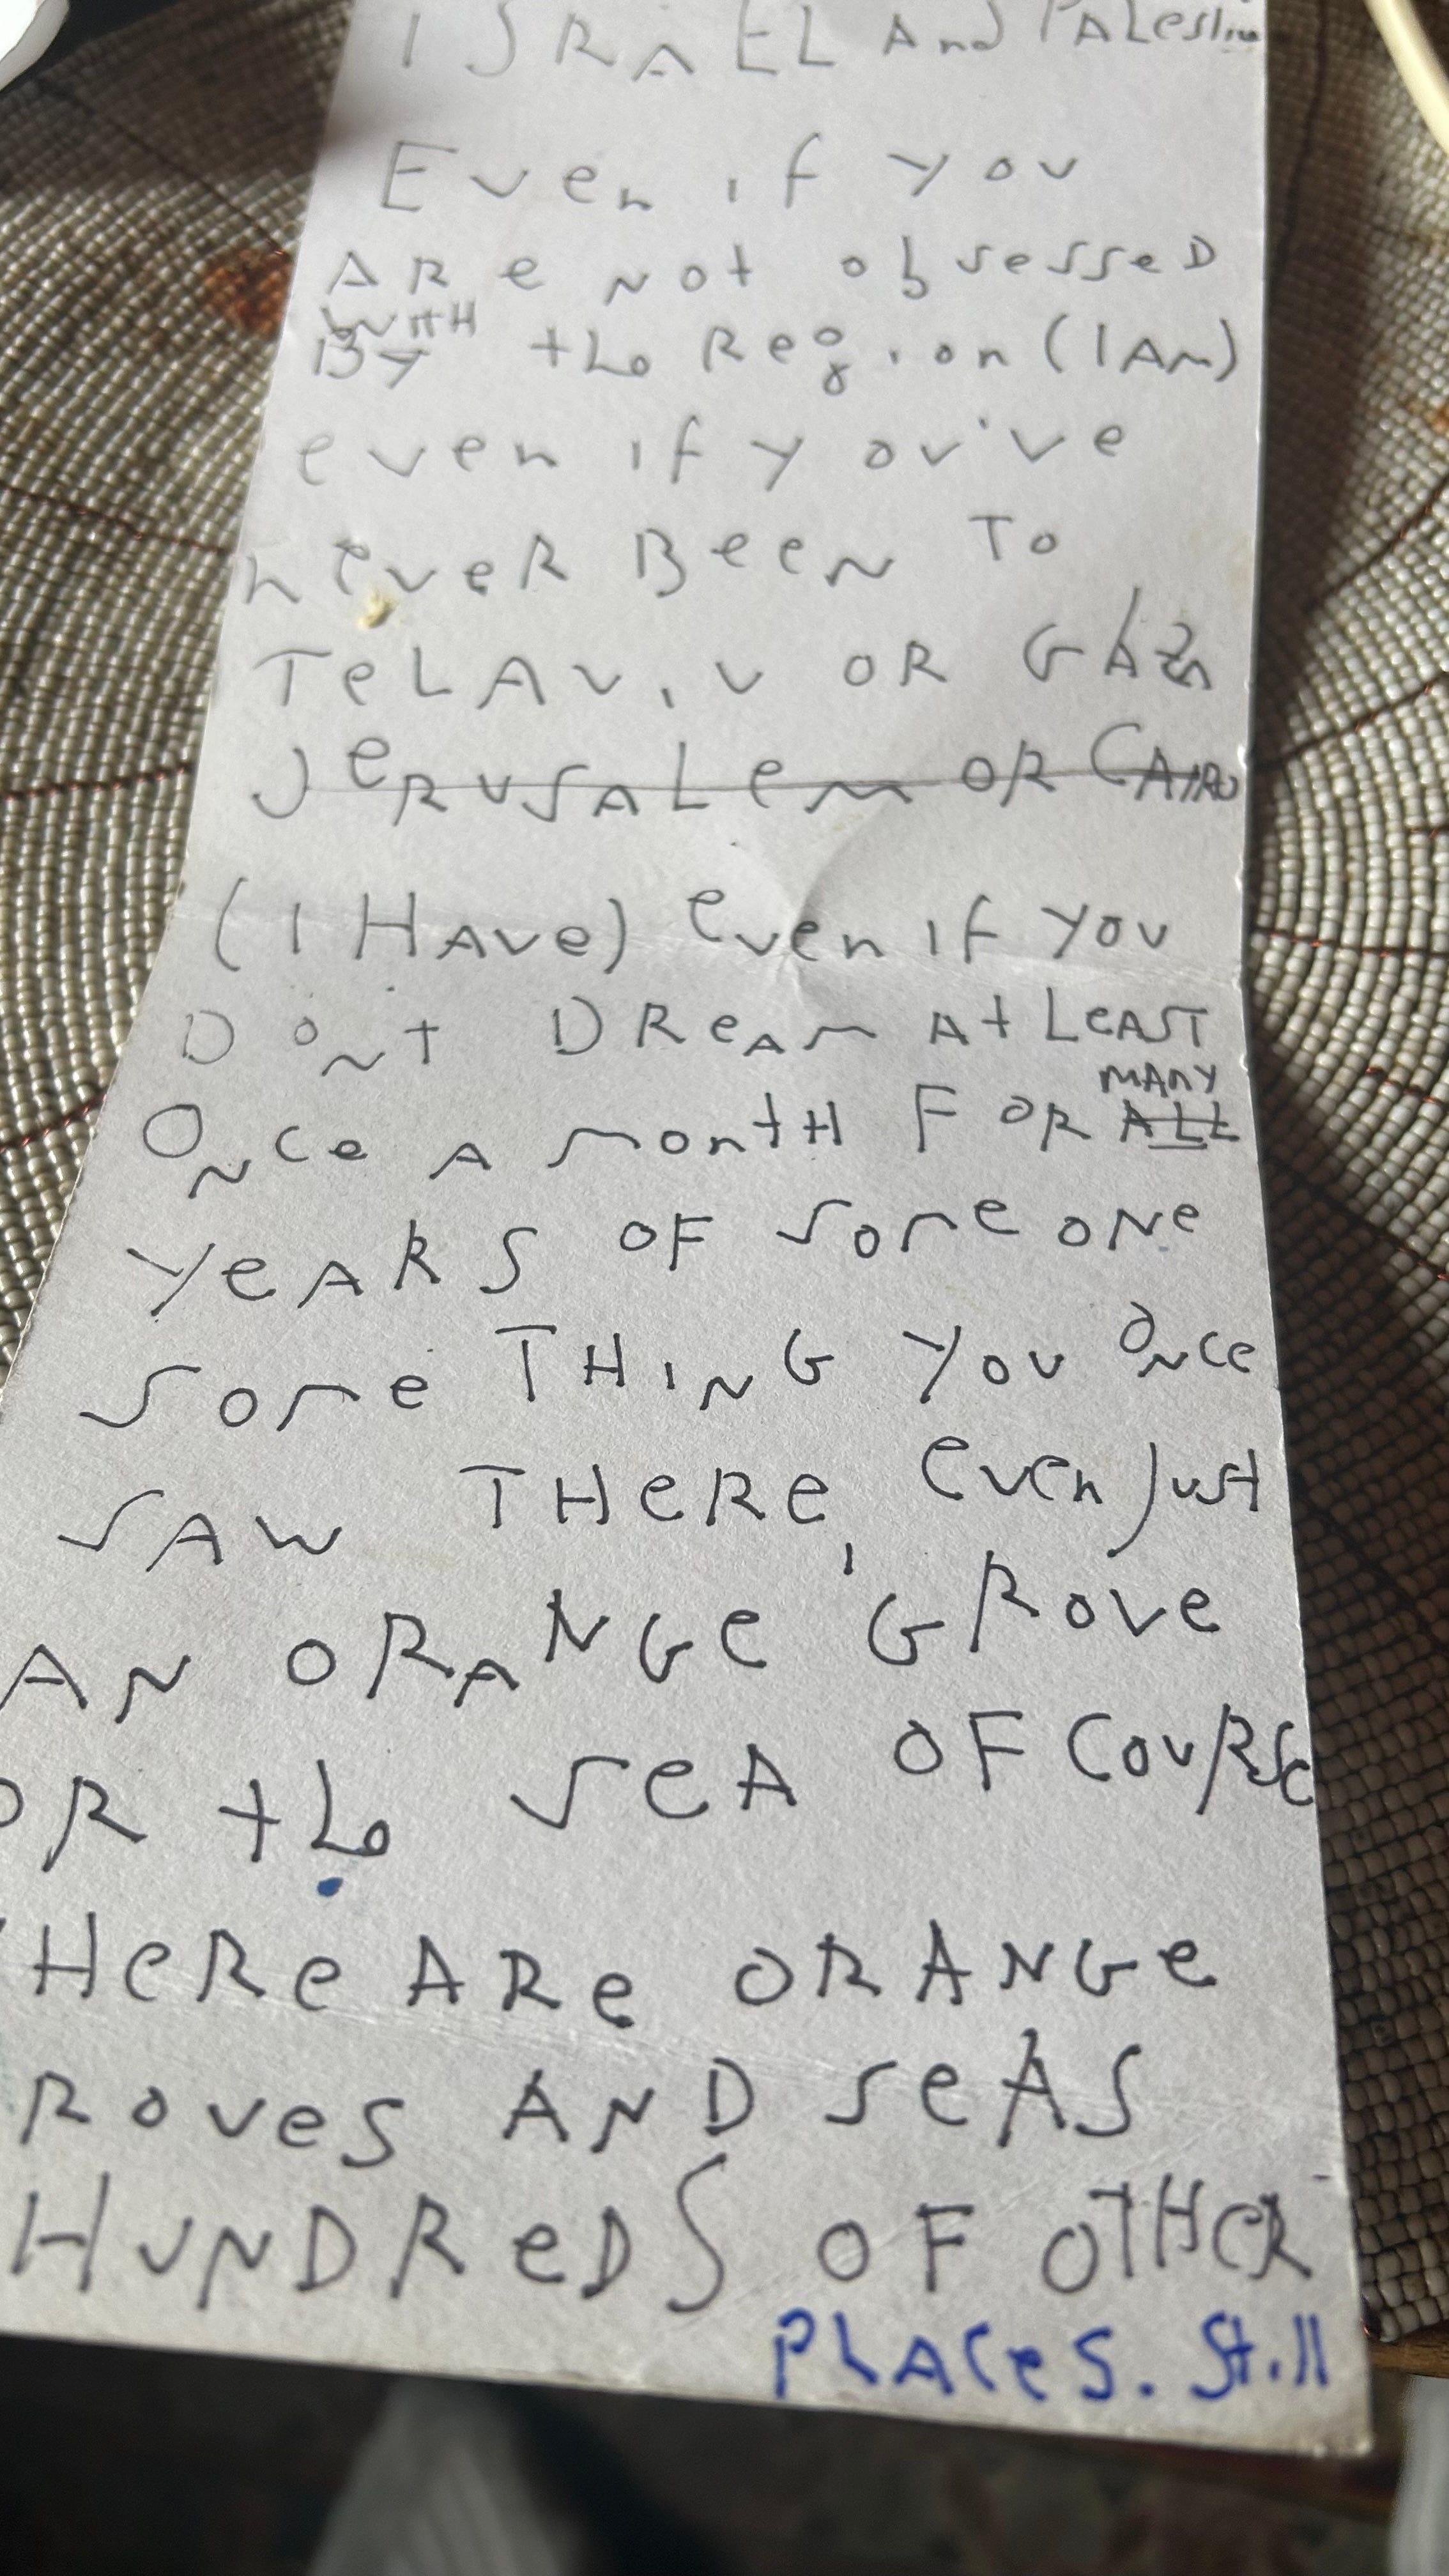 ISRAEL And PALestine
Even if you
ARe not obsesseD
WITH
By the Region (I AM)
even if you've
never Been To
TeL AViv OR GAZA
JeRusALem OR CAIRO
(I HAve) even if you
Dont DReam At LeAST
MANY
Once A month FOR ALL
YeARS OF someone
someTHING you once
SAW THeRe, even just
AN ORANGe GROVe
OR the SeA OF COURSe
HeRe ARe ORANGe
ROVeS AND SeAS
HUNDReDS OF OTHeR
PLACeS. Still